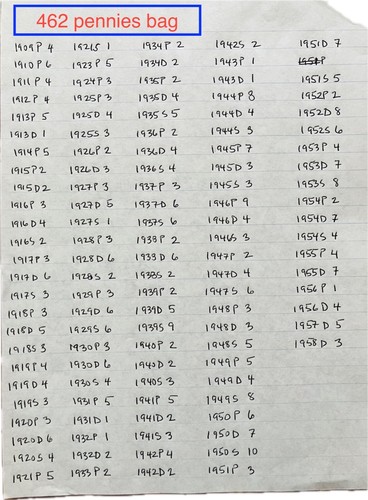 462 pennies bag
1909P 4
1910P 6
1911P 4
1912P 4
1913P 5
1913D 1
1914P 5
1915P 2
1915D 2
1916P 3
1916D 4
1916S 2
1917P 3
1917D 6
1917S 3
1918P 3
1918D 5
1918S 3
1919P 4
1919D 4
1919S 3
1920P 3
1920D 6
1920S 4
1921P 5
1921S 1
1923P 5
1924P 3
1925P 3
1925D 4
1925S 3
1926P 2
1926D 3
1927P 3
1927D 5
1927S 1
1928P 3
1928D 6
1928S 2
1929P 3
1929D 6
1929S 6
1930P 3
1930D 6
1930S 4
1931P 5
1931D 1
1932P 1
1932D 2
1933P 2
1934P 2
1934D 2
1935P 2
1935D 4
1935S 5
1936P 2
1936D 4
1936S 4
1937P 3
1937D 6
1937S 6
1938P 2
1938D 6
1938S 2
1939P 2
1939D 5
1939S 9
1940P 2
1940D 2
1940S 3
1941P 5
1941D 2
1941S 3
1942P 4
1942D 2
1942S 2
1943P 1
1943D 1
1944P 8
1944D 4
1944S 3
1945P 7
1945D 3
1945S 3
1946P 9
1946D 4
1946S 3
1947P 2
1947D 4
1947S 6
1948P 3
1948D 3
1948S 5
1949P 5
1949D 4
1949S 8
1950P 6
1950D 7
1950S 10
1951P 3
1951D 7
1951S 5
1952P 2
1952D 8
1952S 6
1953P 4
1953D 7
1953S 8
1954P 2
1954D 7
1954S 4
1955P 4
1955D 7
1956P 1
1956D 4
1957D 5
1958D 3